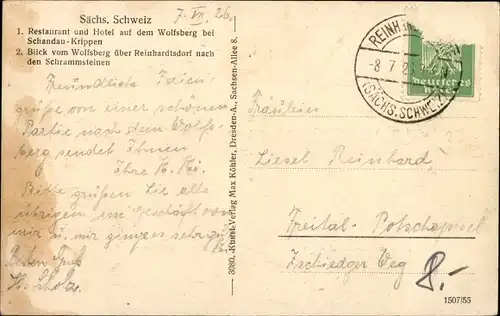 Sächs. Schweiz
7. VII. 26.
1. Restaurant und Hotel auf dem Wolfsberg bei
Schandau-Krippen
2. Blick vom Wolfsberg über Reinhardtsdorf nach
den Schrammsteinen
Freundliche Ferien-
grüße von einer schönen
Partie nach dem Wolfs-
berg sendet Ihnen
Ihre
Bitte grüßen Sie alle
übrigen im Geschäft von
mir u. mir ginge es sehr gut
Besten Gruß
3080. Kunst-Verlag Max Köhler, Dresden-A., Sachsen-Allee 8.
REINH
-8 7 2
(SÄCHS. SCHWEIZ)
Deutsches
Reich
Fräulein
Liesel Reinhard
Freital-Potschappel
Zschiedger Weg 8.-
1507/55